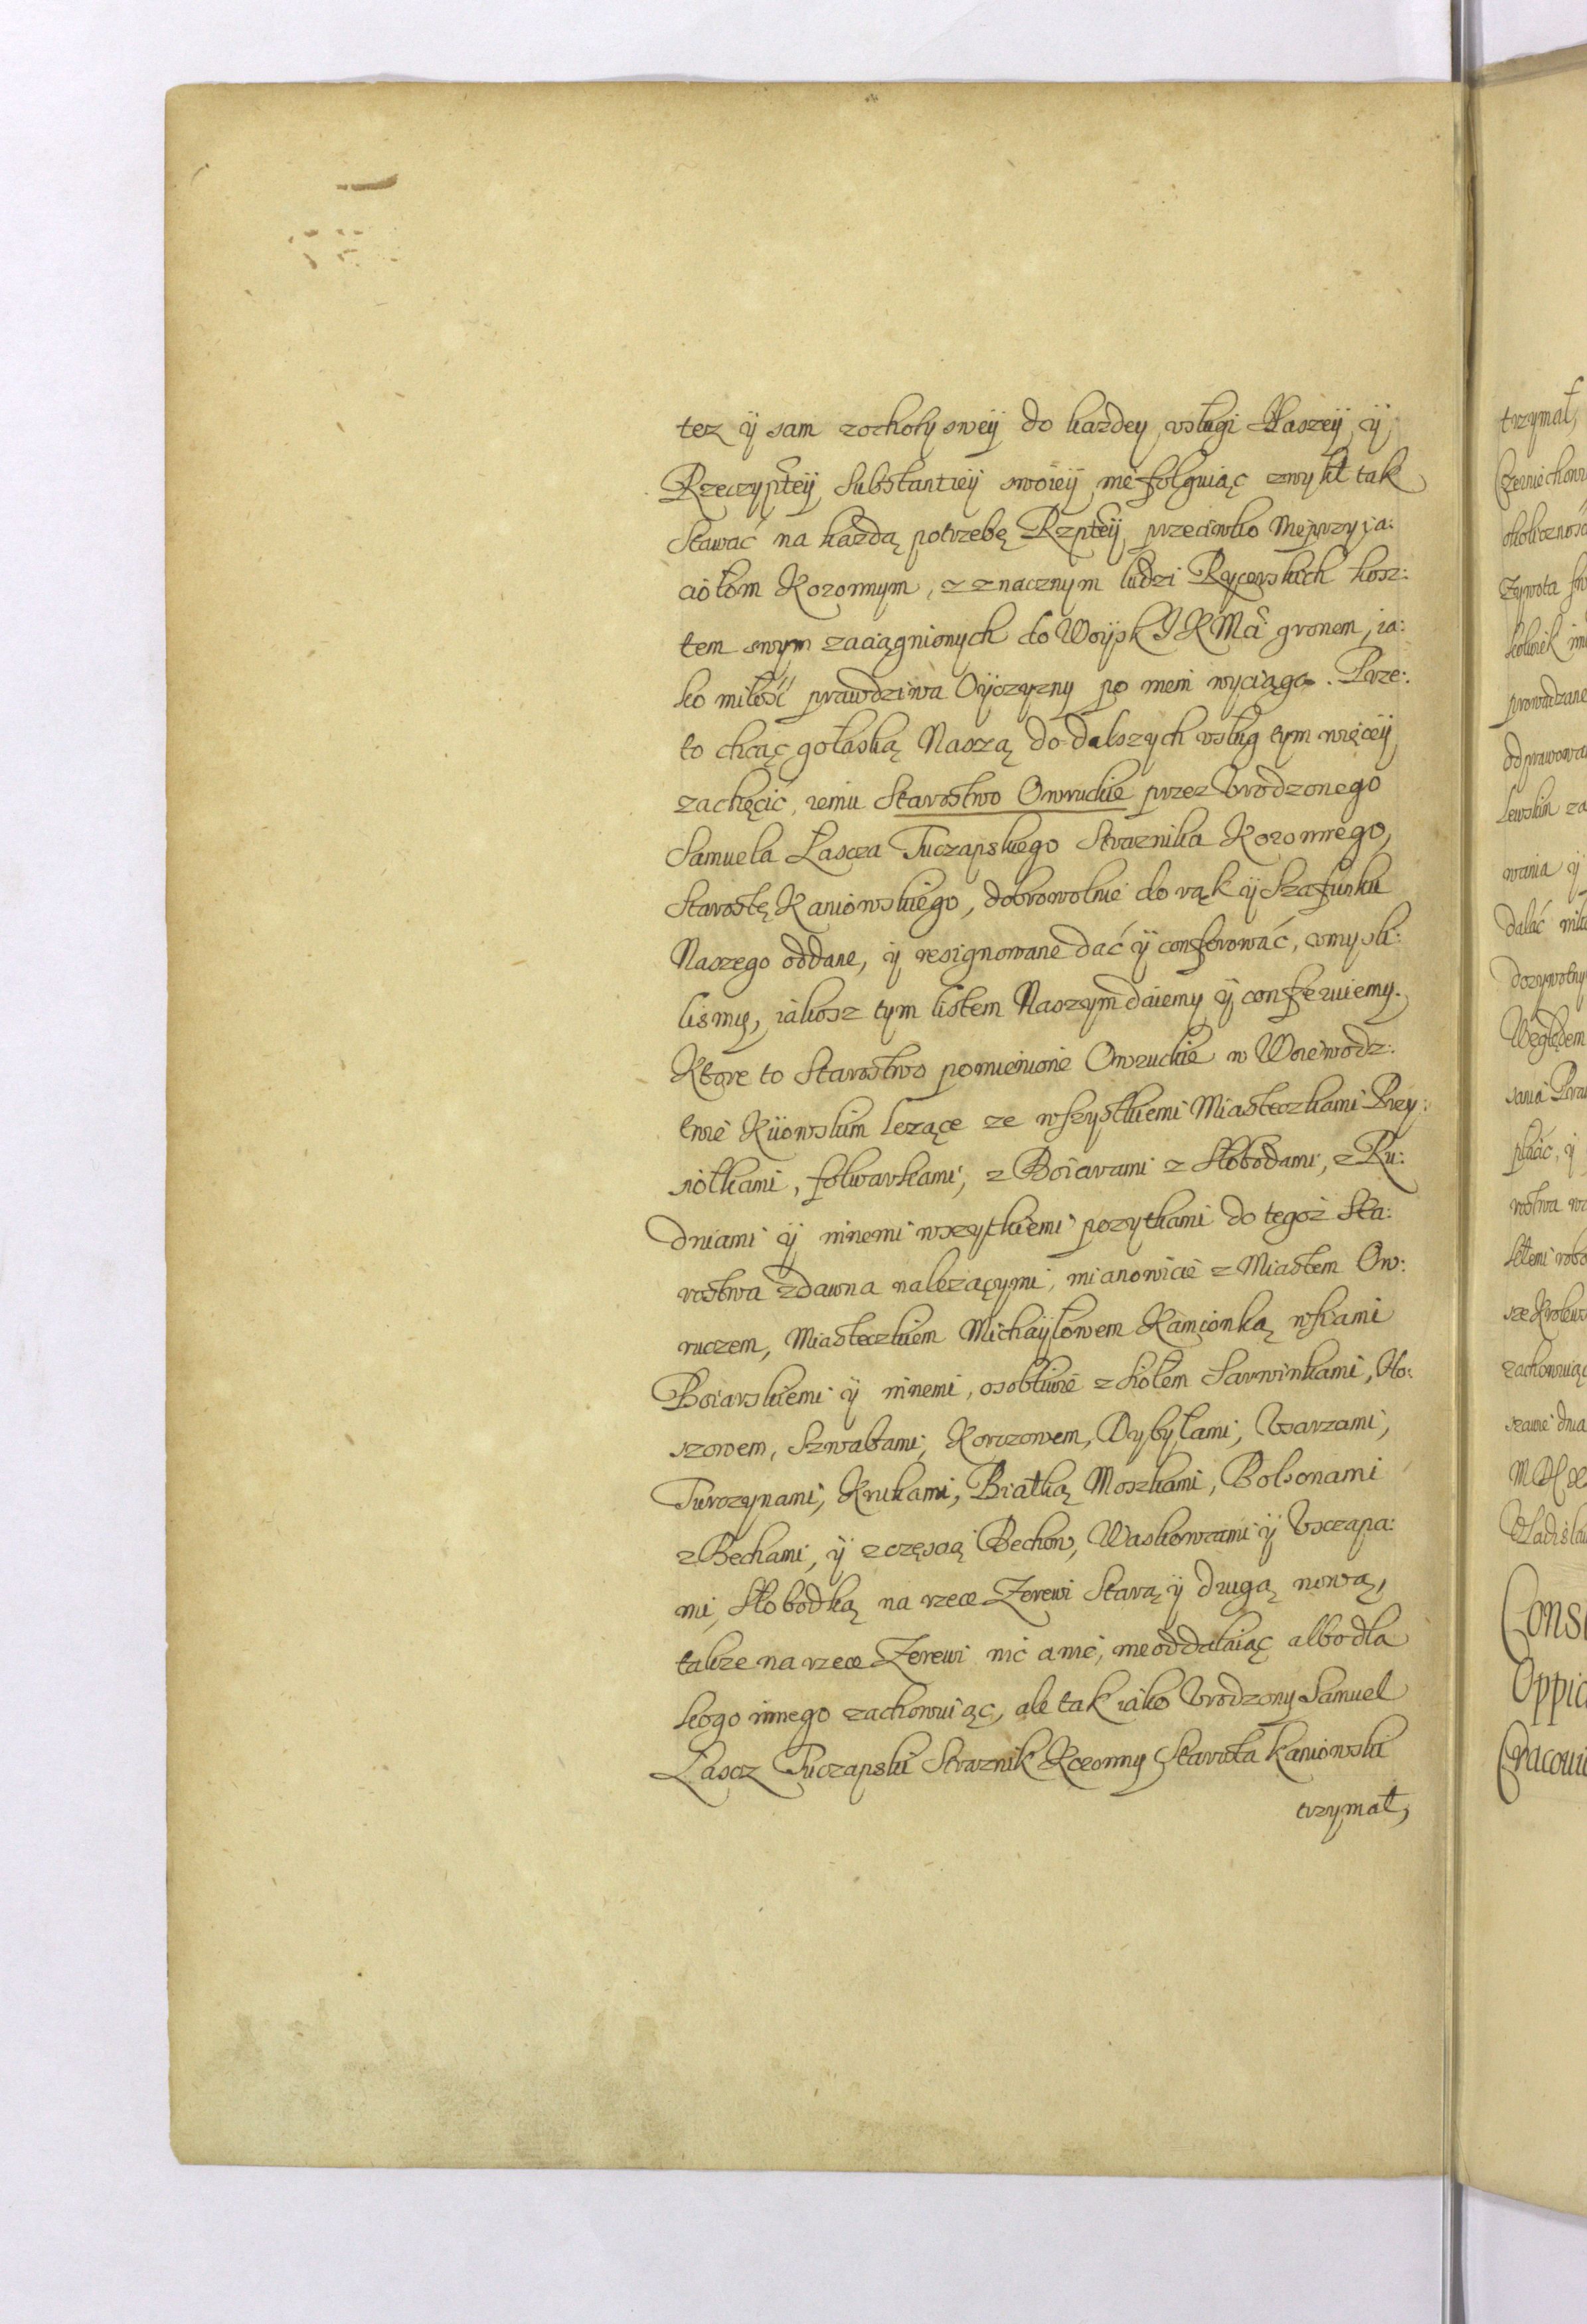 tez ÿ sam zochoty sweÿ do kazdey vsługi Naszeÿ, ÿ
Rzeczyptteÿ Substantieÿ swoieÿ, niefolguiąc zwykł tak
stawać na kazdą potrzebę Rzpteÿ przeciwko Nieprzyia:
ciołom Koronnym, z znacznym ludzi Rycerskich kosz:
tem swym zaciągnionych do Woÿsk JKMći gronem, ia:
ko miłość prawdziwa Oÿczyzny po niem wyciąga. Prze:
to chcąc go łaską Naszą do dalszych vsług tym więceÿ
zachęcić, iemu Starostwo Owruckie przez Vrodzonego
Samuela Łascza Tuczapskiego Straznika Koronnego,
Starostę Kaniowskiego, dobrowolnie do rąk ÿ Szafunku
Naszego oddane, ÿ resignowane dać ÿ conferować, vmysli:
lismy, iakosz tym listem Naszym daiemy ÿ conferuiemy.
Ktore to Starostwo pomienione Owruckie w Woiewodz:
twie Kiiowskim lezące ze wszystkiemi Miasteczkami Przy:
siołkami, folwarkami, z Boiarami z Słobodami, z Ru:
dniami ÿ innemi wszytkiemi pozytkami do tegoż Sta:
rostwa zdawna nalezącymi, mianowicie z Miastem Ow:
ruczem, Miasteczkiem Michaÿłowem Kamionką wsiami
Boiarskiemi ÿ innemi, osobliwie z siołem Sarwinkami,
szowem, Szwabami, Korczowem, Dybyłami, Vsarzami,
Turczynami, Krukami, Białką Moszkami, Bolsonami
z Bechami, ÿ z częscią Bechow, Waskowcami ÿ Vsczapa:
mi, Słobodką na rzece Zerewi Starą ÿ drugą nową,
takze na rzece Zerewi nic a nic, nieoddalaiąc albo dla
kogo innego zachowuiąc, ale tak iako Vrodzony Samuel
Łascz Tuczapski Straznik Koronny Starosta Kaniowski
trzymał,